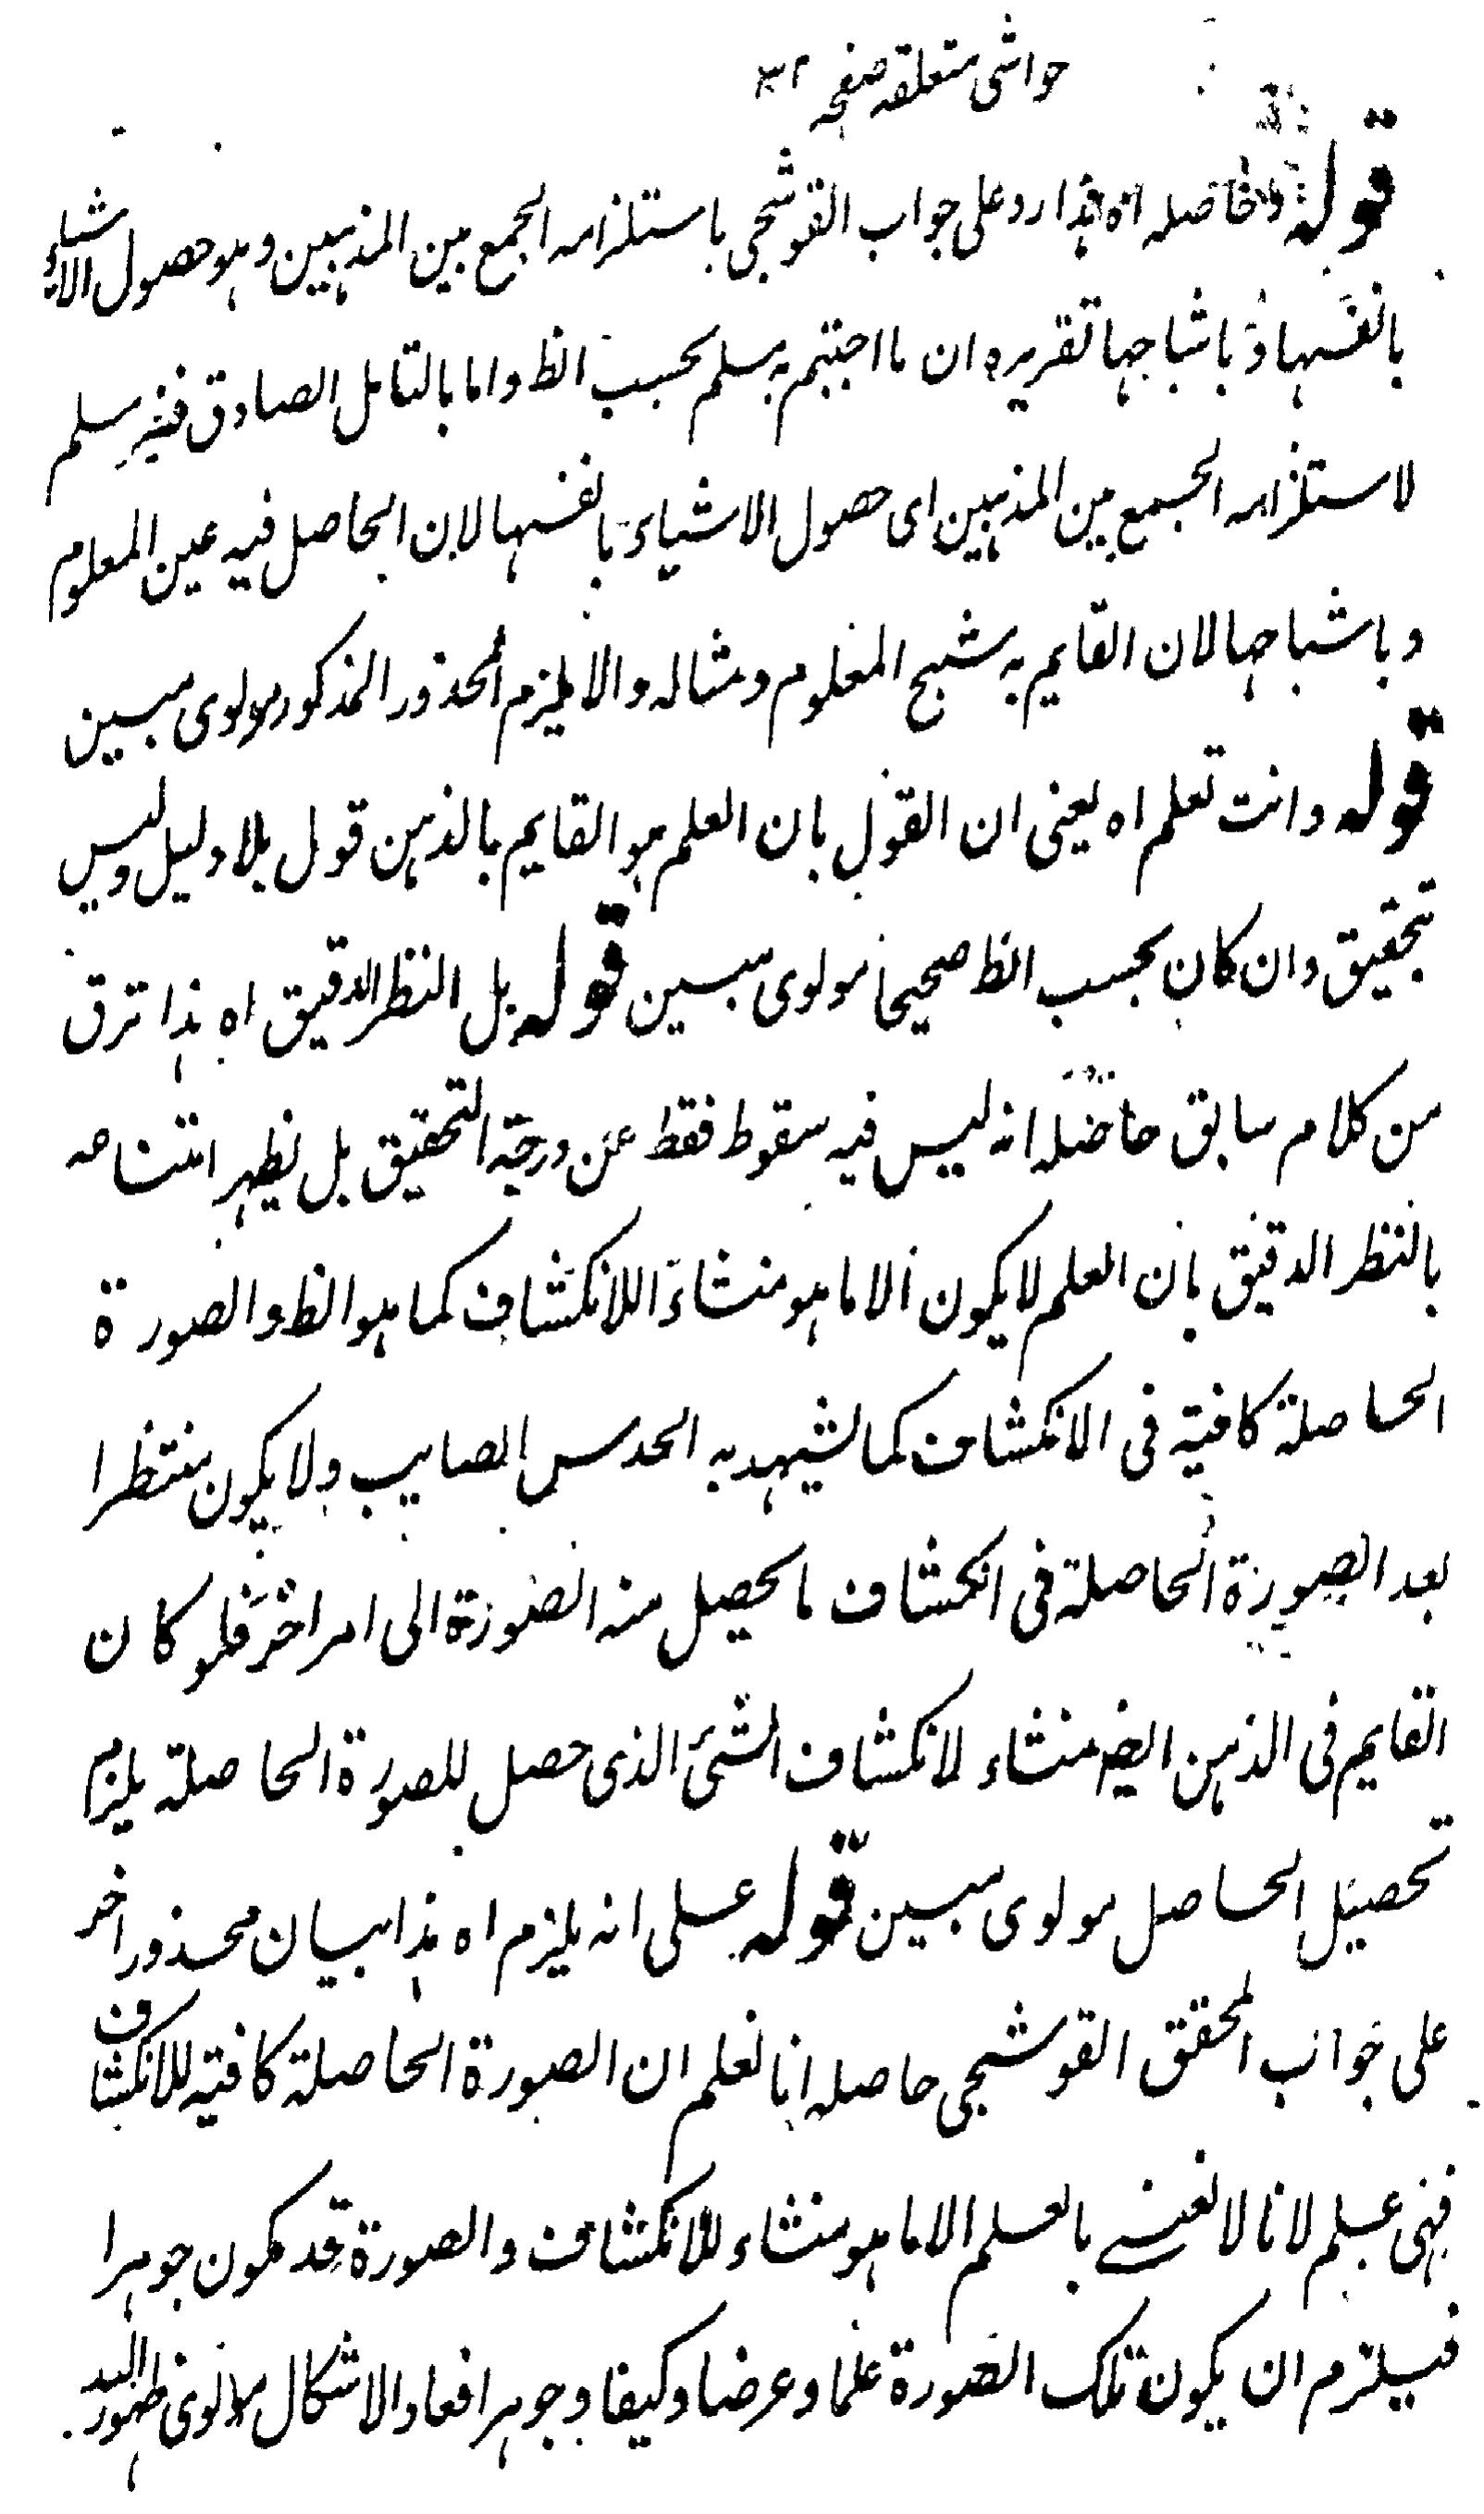 حواشی متعلقه صفحه ۳۱
قوله وحاصله اه هذا رد علی جواب القوشجی باستلزامه الجمع بین المذهبین وهو حصول الاشیاء
بانفسها وباشباحها تقریره ان ما اجبتم به مسلم بحسب الظ واما بالتامل الصادق فغیر مسلم
لاستلزامه الجمع بین المذهبین ای حصول الاشیاء بانفسها لان الحاصل فیه عین المعلوم
وباشباحها لان القایم به شبح المعلوم ومثاله والا یلزم المحذور المذکور مولوی مبین
قوله وانت تعلم اه یعنی ان القول بان العلم هو القایم بالذهن قول بلا دلیل ولیس
بتحقیق وان کان بحسب الظ صحیحا مولوی مبین قوله بل النظر الدقیق اه هذا ترق
من کلام سابق حاصله انه لیس فیه سقوط فقط عن درجة التحقیق بل یظهر امتناعه
بالنظر الدقیق بان العلم لا یکون الا ما هو منشاء اللانکشاف کما هو الظ والصورة
الحاصلة کافیة فی الانکشاف کما یشهد به الحدس الصایب ولا یکون منتظرا
بعد الصورة الحاصلة فی انکشاف ما یحصل منه الصورة الی امر اخر فلو کان
القایم فی الذهن ایضا منشاء لانکشاف الشئ الذی حصل للصورة الحاصلة یلزم
تحصیل الحاصل مولوی مبین قوله علی انه یلزم اه هذا بیان محذور اخر
علی جواب المحقق القوشجی حاصله انا نعلم ان الصورة الحاصلة کافیة للانکشاف
فهی علم لانا لا نعنی بالعلم الا ما هو منشاء للانکشاف والصورة قد تکون جوهرا
فیلزم ان یکون تلک الصورة علما وعرضا وکیفا وجوهرا فعاد الاشکال مولوی ظهور الله